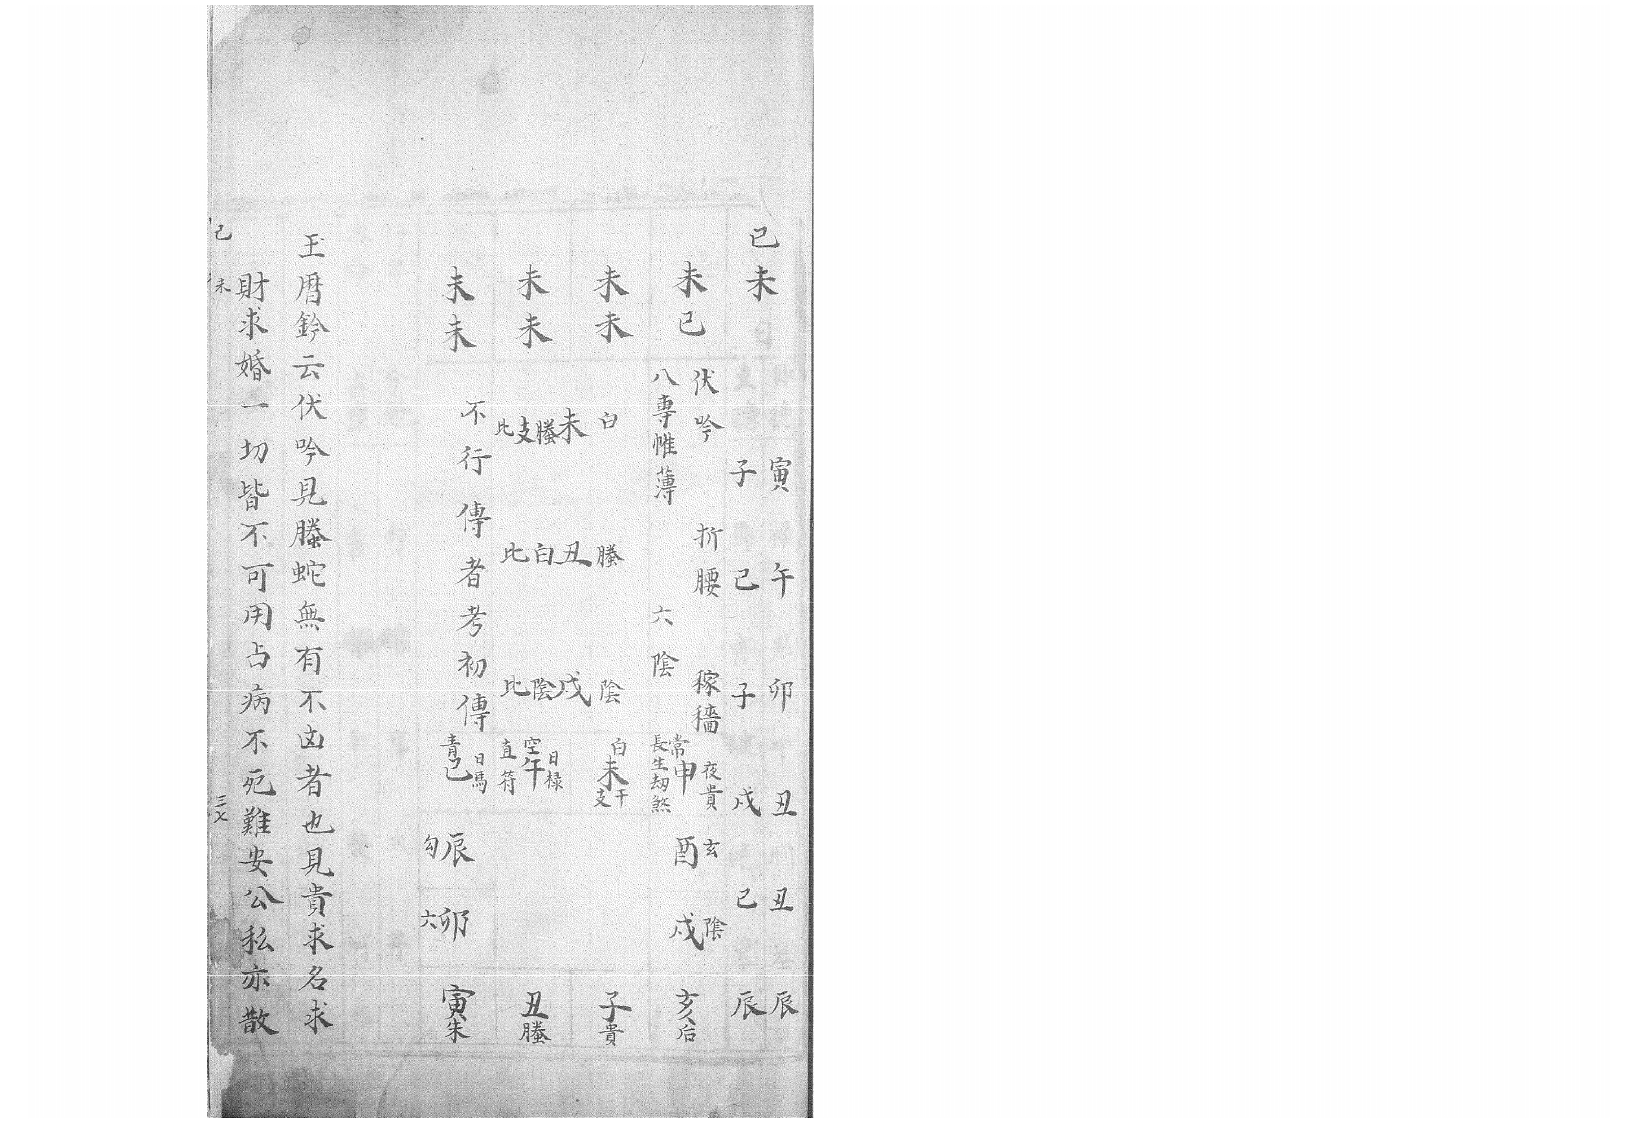 己未
寅午卯丑丑辰
子己子戌己辰
未己
伏吟 折腰 稼穡
八專帷薄 六陰
夜貴
常申
長生劫煞
玄酉
陰戌
亥后
未未
白 螣 陰
未 丑 戌
螣 白 陰
支
比 比 比
白
未
干
支
子貴
未未
日祿
空午
直符
丑螣
未未
不行傳者考初傳
日馬
青巳
辰勾
卯六
寅朱
玉曆鈐云伏吟見螣蛇無有不凶者也見貴求名求
財求婚一切皆不可用占病不死難安公私亦散
己未
三七